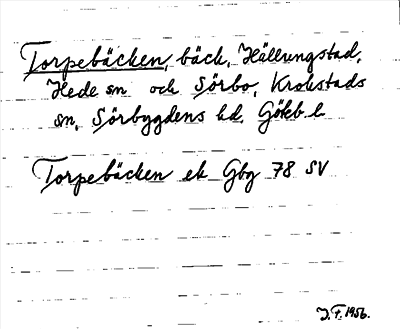 Torpebäcken, bäck, Hällungstad,
Hede sn och Sörbo, Krokstads
sn, Sörbygdens hd. Göteb. l.
Torpebäcken ek Gbg 78 SV
J.F. 1956.